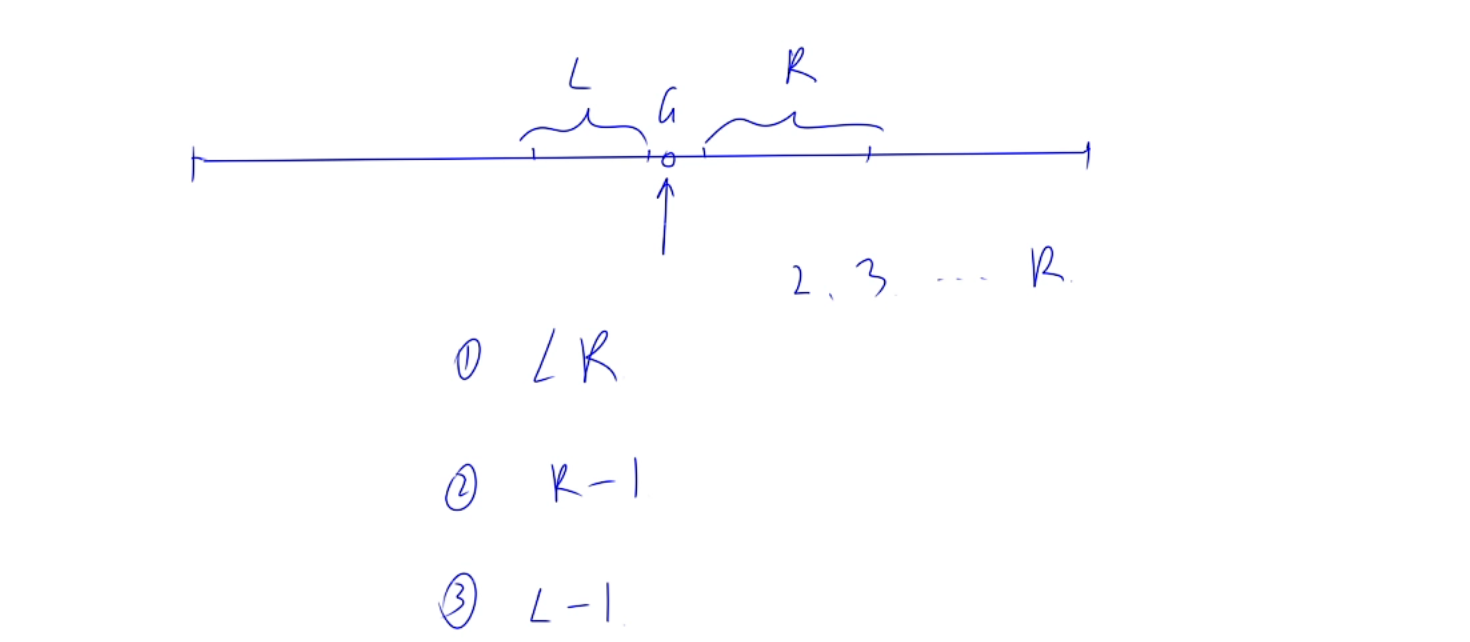 L R
G
2, 3 ... R.
① LR
② R-1
③ L-1